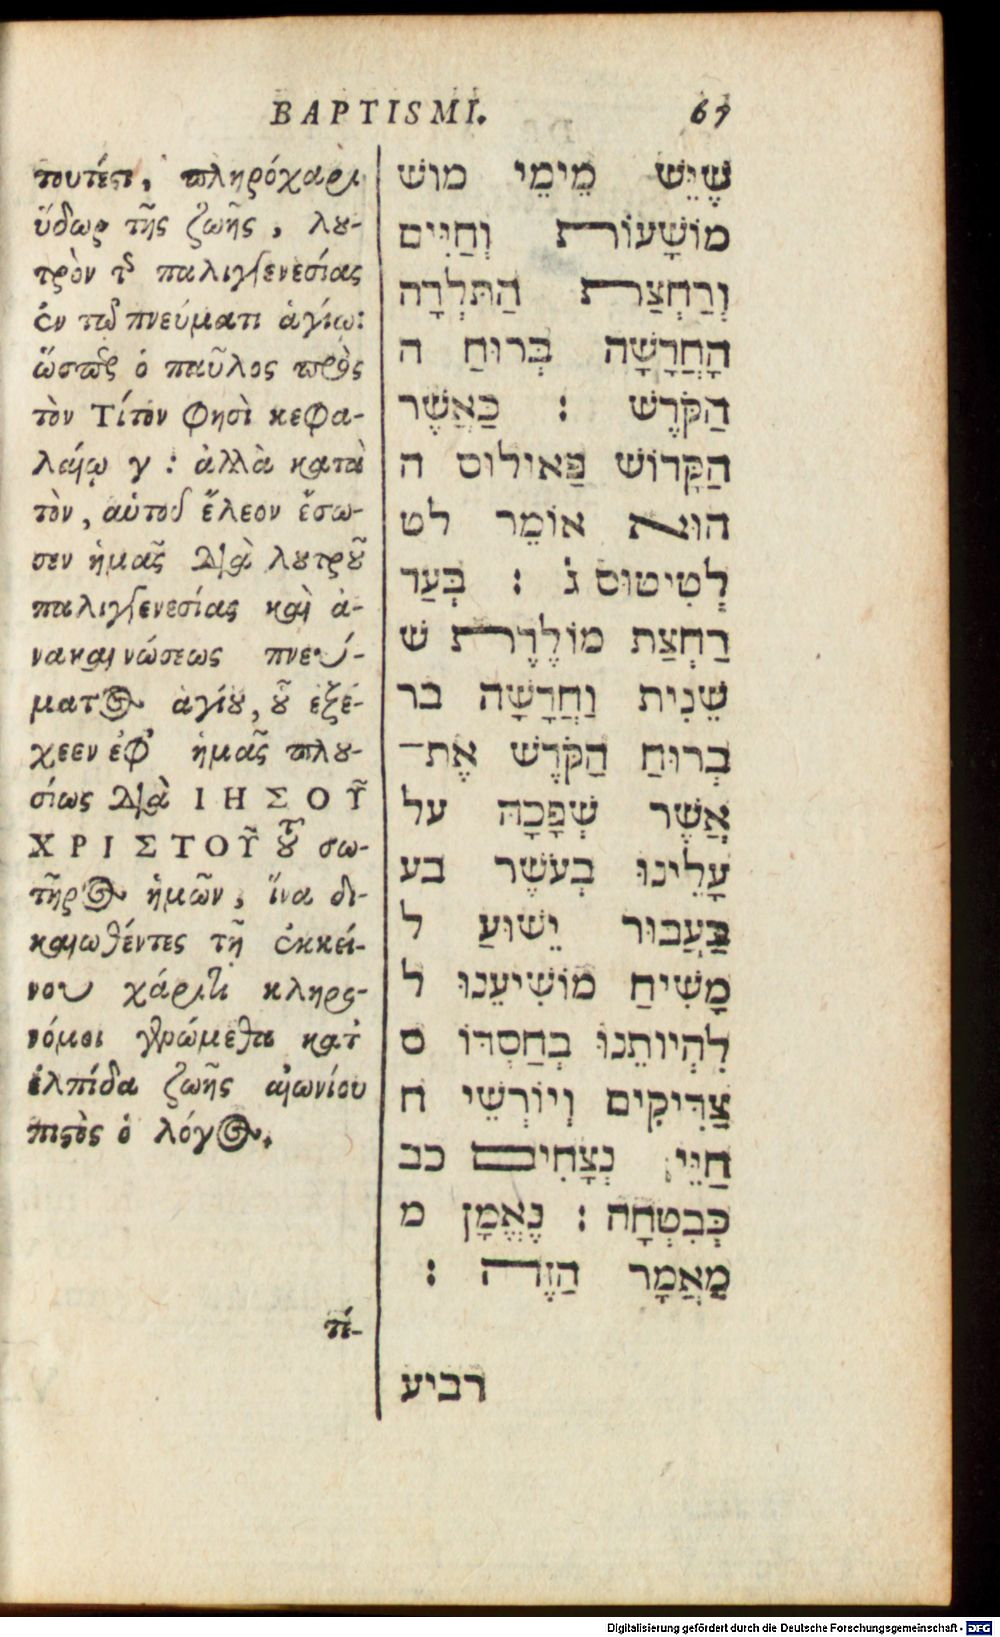 BAPTISMI. 67
τουτέστι, πληρόχαρι
ὕδωρ τῆς ζωῆς, λου-
τρὸν τ παλιγγενεσίας
ἐν τῷ πνεύματι ἁγίῳ:
ὥσπερ ὁ παῦλος πρὸς
τὸν Τίτον φησὶ κεφα-
λαίῳ γ : ἀλλὰ κατὰ
τὸν, αὑτοῦ ἔλεον ἔσω-
σεν ἡμᾶς διὰ λουτροῦ
παλιγγενεσίας καὶ ἀ-
νακαινώσεως πνεύ-
ματος ἁγίου, οὗ ἐξέ-
χεεν ἐφ' ἡμᾶς πλου-
σίως διὰ ΙΗΣΟΥ͂
ΧΡΙΣΤΟΥ͂ τοῦ σω-
τῆρος ἡμῶν, ἵνα δι-
καιωθέντες τῇ ἐκκεί-
νου χάριτι κληρο-
νόμοι γενώμεθα κατ'
ἐλπίδα ζωῆς αἰωνίου
πιστὸς ὁ λόγος.
τί-
שֶׁיֵּשׁ מֵימֵי מוש
מוֹשָׁעוֹת וְחַיִּים
וְרַחְצַת הַתֹּלְדָה
הָחֲדָשָׁה בְּרוּחַ ה
הַקֹּדֶשׁ : כַּאֲשֶׁר
הַקָּדוֹשׁ פַּאִילוּס ה
הוּא אוֹמֵר לט
לְטִיטוּס ג : בְּעַד
רַחְצַת מוֹלֶדֶת ש
שֵׁנִית וַחֲדָשָׁה בר
בְּרוּחַ הַקֹּדֶשׁ אֶת־
אֲשֶׁר שְׁפָכָהּ על
עָלֵינוּ בְּעֹשֶׁר בע
בַּעֲבוּר יֵשׁוּעַ ל
מָשִׁיחַ מוֹשִׁיעֵנוּ ל
לִהְיוֹתֵנוּ בְחַסְדּוֹ ס
צַדִּיקִים וְיוֹרְשֵׁי ח
חַיֵּי נְצָחִים כב
כְּבִטְחָה : נֶאֱמָן מ
מַאֲמָר הַזֶּה :
רביע
Digitalisierung gefördert durch die Deutsche Forschungsgemeinschaft - DFG